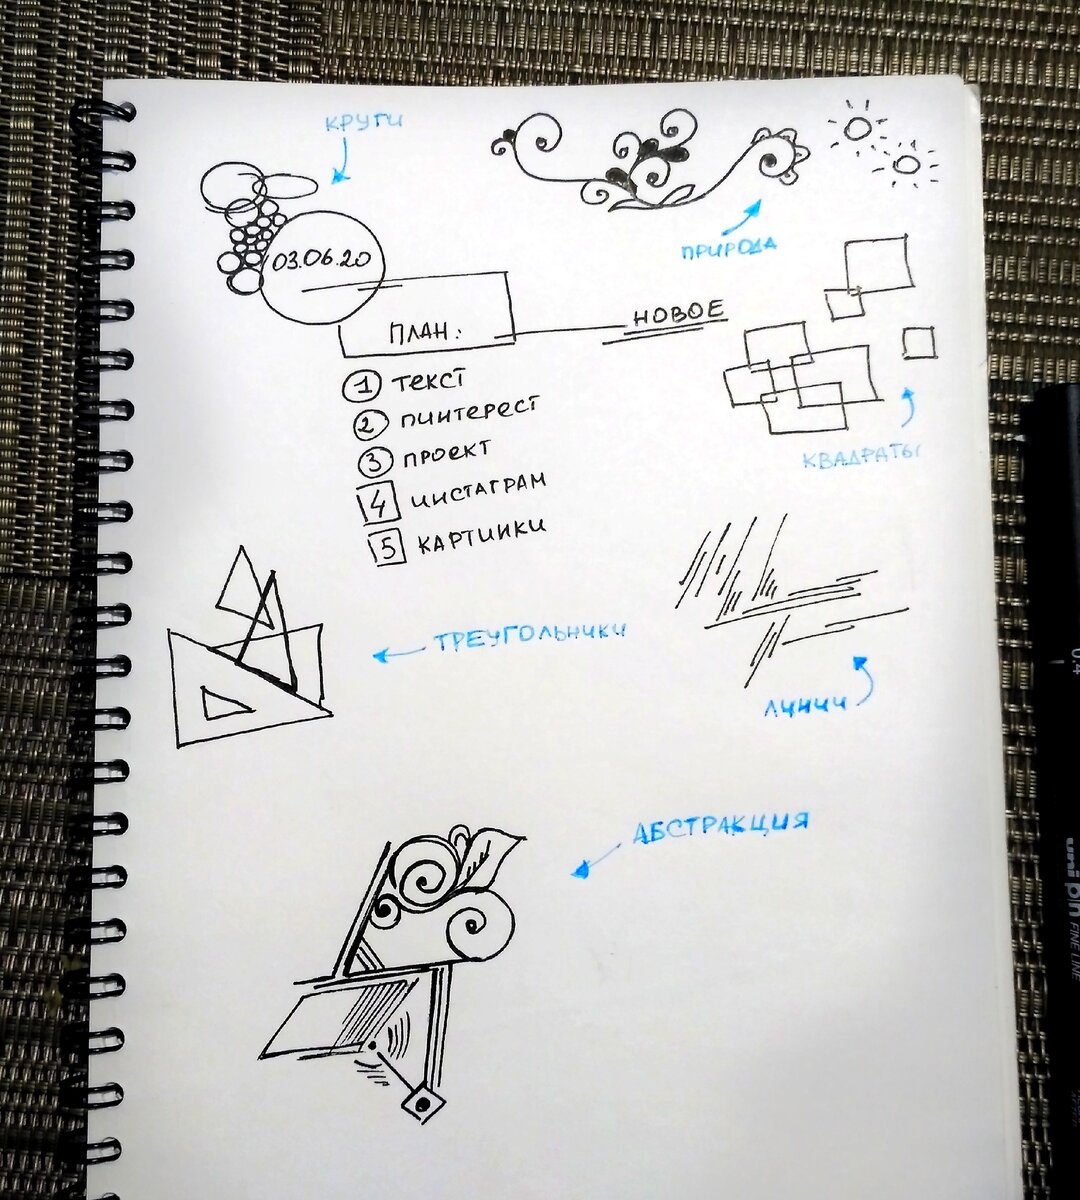 КРУГИ
ПРИРОДА
03.06.20
ПЛАН:
НОВОЕ
1 ТЕКСТ
2 ПИНТЕРЕСТ
3 ПРОЕКТ
4 ИНСТАГРАМ
5 КАРТИНКИ
КВАДРАТЫ
ТРЕУГОЛЬНИКИ
ЛИНИИ
АБСТРАКЦИЯ
0.4
uni pin FINE LINE